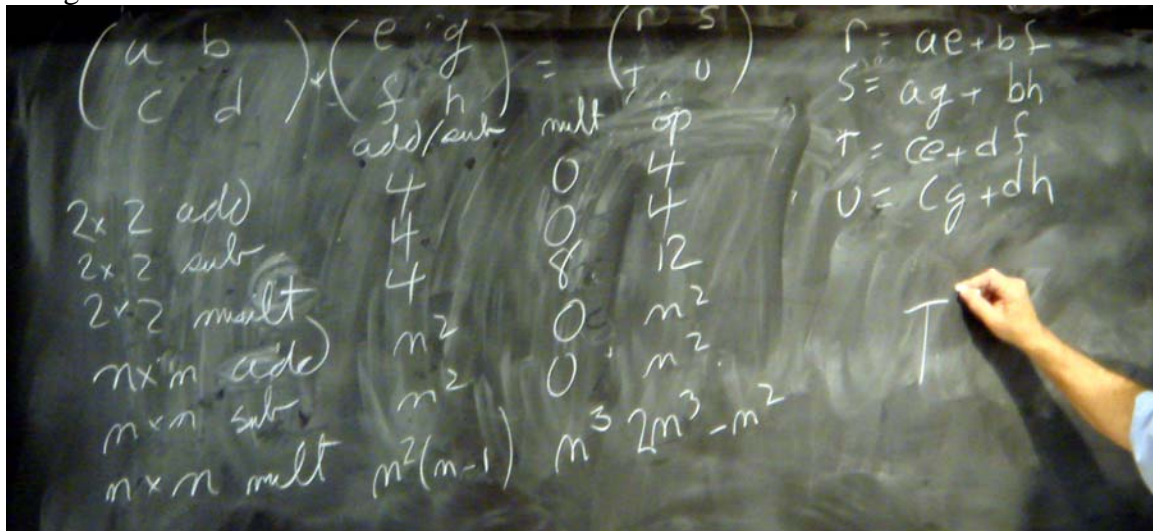 ( a b ) * ( e g ) = ( r s )
( c d ) ( f h ) ( t u )
r = ae + bf
s = ag + bh
t = ce + df
u = cg + dh
add/sub mult op
2×2 add 4 0 4
2×2 sub 4 0 4
2×2 mult 4 8 12
n×n add n² 0 n²
n×n sub n² 0 n²
n×n mult n²(n-1) n³ 2n³-n²
T